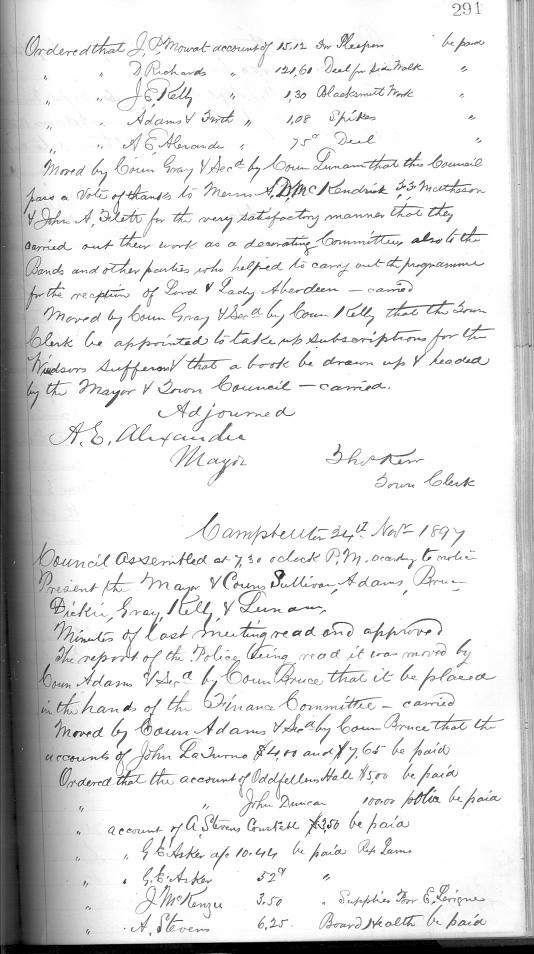 291
Ordered that J. P. Mowat account of 15,12 for Sleepers be paid
" " D Richards " 121,60 Deal for Side Walk "
" " J. E. Kelly " 1,30 Blacksmith Work "
" " Adams & Firth " 1,08 Spikes "
" " A E Alexander " 75c Deal "
Moved by Coun Gray & Secd by Coun Lunam that this Council
pass a Vote of thanks to Messrs A, D, McKendrick F. F. Matheson
& John A, for the very satisfactory manner that they
carried out their work as a decorating Committee also to the
Bands and other parties who helped to carry out the programme
for the reception of Lord & Lady Aberdeen – carried
Moved by Coun Gray & Secd by Coun Kelly that the Town
Clerk be appointed to take up subscriptions for the
Windsors sufferers & that a book be drawn up & headed
by the Mayor & Town Council – carried.
Adjourned
A. E. Alexander
Mayor
Thos Kerr
Town Clerk
Campbellton 24th Novr 1897
Council Assembled at 7,30 oclock P. M. to notice
Present the Mayor & Couns Sullivan, Adams, Bruce
Dickie, Gray, Kelly, & Lunam,
Minutes of last meeting read and approved
The report of the Police being read it was moved by
Coun Adams & Secd by Coun Bruce that it be placed
in the hands of the Finance Committee – carried
Moved by Coun Adams & Secd by Coun Bruce that the
accounts of John La $4,00 and $7,65 be paid
Ordered that the account of Oddfellows Hall $5,00 be paid
" " John Duncan 10000 police be paid
" account of A, Stevens Constable $3,50 be paid
" " G E Asker a/c 10.44 be paid Rep Lams
" " G. E. Asker 52c "
" " J McKenzie 3.50 " Supplies For E.
" " A. Stevens 6,25 Board Health be paid